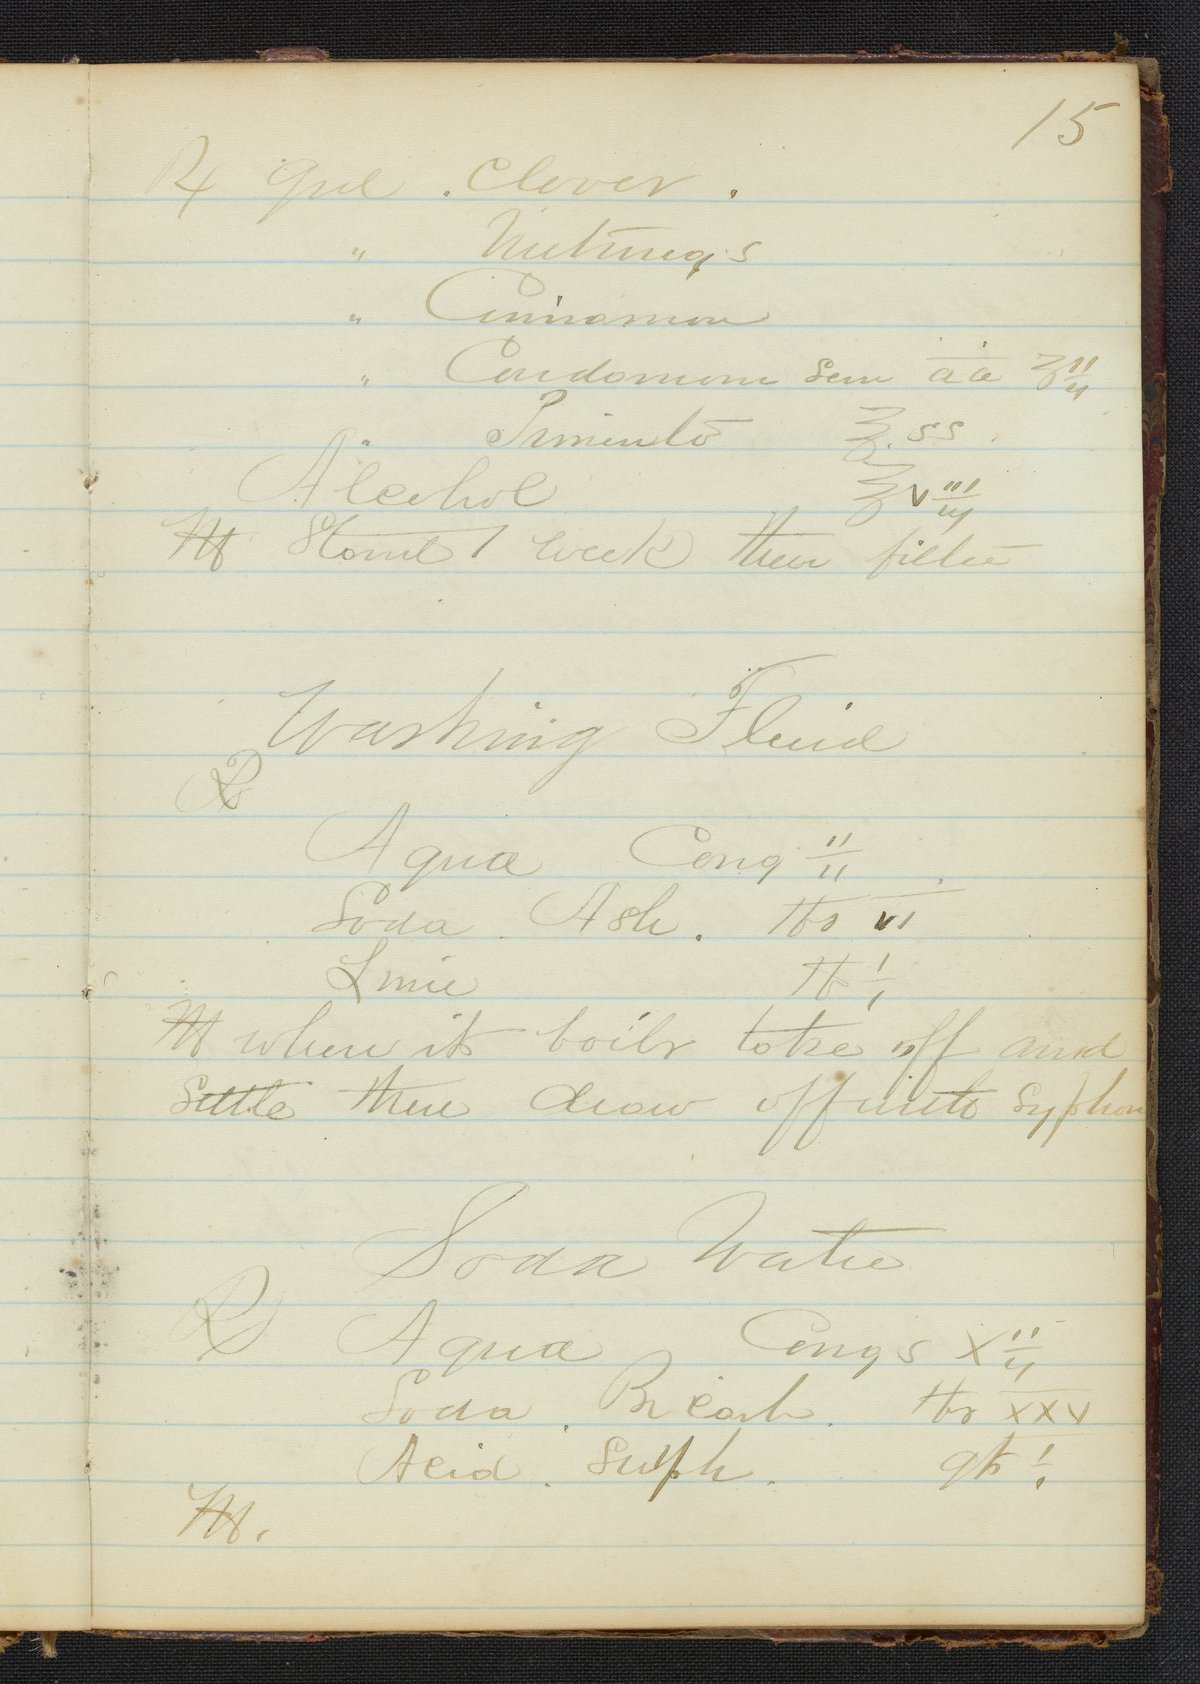 15
℞ Gul. Clover.
" Nutmegs
" Cinnamon
" Cardamom Sem āā ʒ ii
" Pimento ℥ ss
Alcohol ℥ viii
M Stand 1 week then filter
Washing Fluid
℞
Aqua Cong ii
Soda Ash. lbs vi
Lime lb i
M when it boils take off and
Settle then draw off with Syphon
Soda Water
℞ Aqua Congs xii
Soda. Bi Carb. lbs xxv
Acid. Sulph. qts i
M.